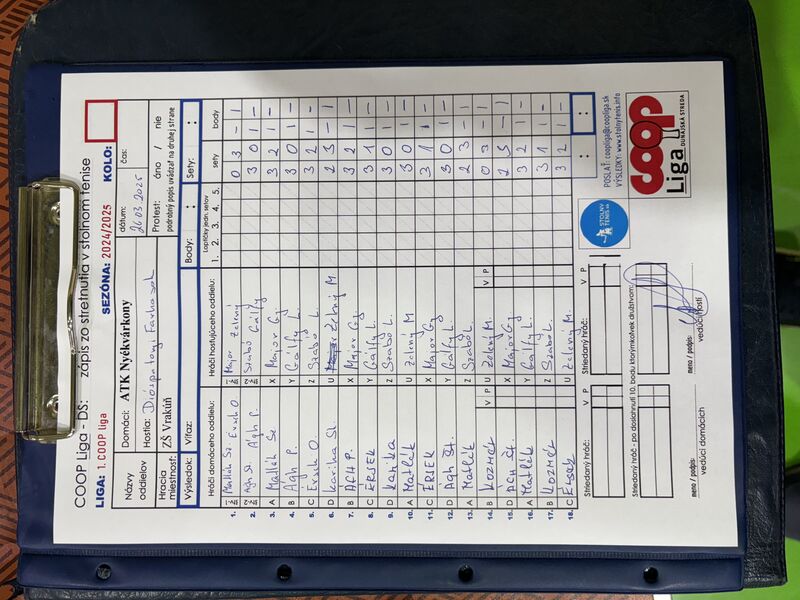 COOP Liga - DS: zápis zo stretnutia v stolnom tenise
LIGA: 1.COOP liga SEZÓNA: 2024/2025 KOLO:
Názvy oddielov Domáci: ATK Nyékvárkony dátum: 26.03.2025 čas:
Hostia: Diószpatonyi Farkasok
Hracia miestnosť: ZŠ Vrakúň Protest: áno / nie
podrobný popis uvádzať na druhej strane
Výsledok: Víťaz: Body: : Sety: :
Hráči domáceho oddielu: Hráči hosťujúceho oddielu: Loptičky jedn. setov sety body
1. 2. 3. 4. 5.
1. Matlák Sz. Ersek O. Major Zelný 0 3 - 1
2. Agh St. Agh P. Szabó Gálfy 3 0 1 -
3. A Matlák Sz X Major Gy 3 2 1 -
4. B Agh P. Y Gálfy L. 3 0 1 -
5. C Ersek O. Z Szabó L. 3 2 1 -
6. D Karika St. U Zelný M 2 3 - 1
7. B AGH P. X Major Gy 3 2 1 -
8. C ERSEK Y Gálfy L. 3 1 1 -
9. D Karika Z Szabó L. 3 0 1 -
10. A Matlák U Zelný M 3 0 1 -
11. C ERSEK X Major Gy 3 1 1 -
12. D Agh St. Y Gálfy L. 3 0 1 -
13. A Matlák Z Szabó L 2 3 - 1
14. B KOZMÉR V P U Zelný M. V P 0 3 - 1
15. D AGH St. X Major Gy
16. A Matlák Y Gálfy L 3 2 1 -
17. B KOZMÉR Z Szabó L. 3 1 1 -
18. C Ersek U Zelný M. 3 2 1 -
Striedaný hráč: V P Striedaný hráč: V P : :
Striedaný hráč - po dosiahnutí 10. bodu ktorýmkoľvek družstvom:
meno / podpis: meno / podpis:
vedúci domácich vedúci hostí
STOLNÝ TENIS.sk
POSLAŤ: coopliga@coopliga.sk
VÝSLEDKY: www.stolnytenis.info
coop
Liga DUNAJSKÁ STREDA